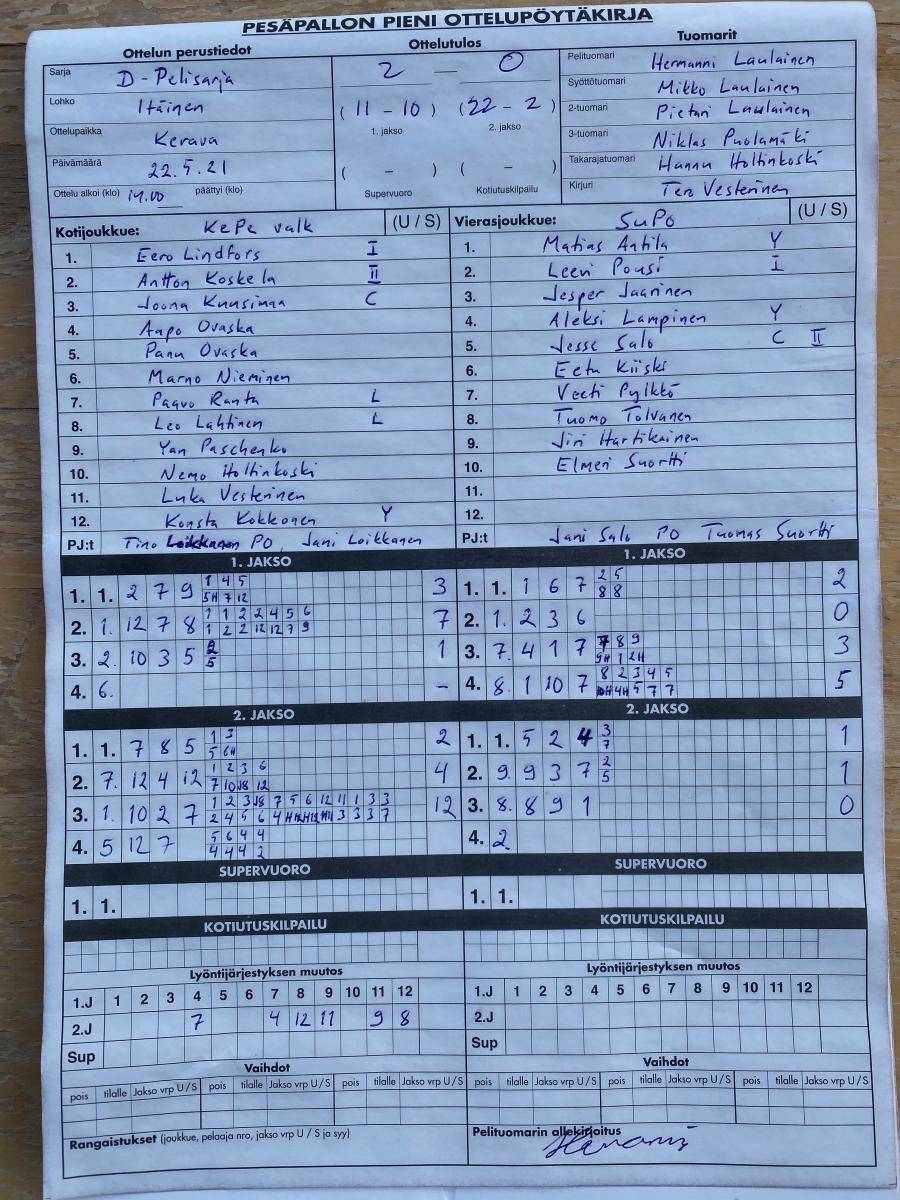 PESÄPALLON PIENI OTTELUPÖYTÄKIRJA
Ottelun perustiedot
Sarja D-Pelisarja
Lohko Itäinen
Ottelupaikka Kerava
Päivämäärä 22.5.21
Ottelu alkoi (klo) 14.00 päättyi (klo)
Ottelutulos
2 — 0
( 11 - 10 ) (22 - 2 )
1. jakso 2. jakso
( - ) ( - )
Supervuoro Kotiutuskilpailu
Tuomarit
Pelituomari Hermanni Laulainen
Syöttötuomari Mikko Laulainen
2-tuomari Pietari Laulainen
3-tuomari Niklas Puolamäki
Takarajatuomari Hannu Holtinkoski
Kirjuri Tero Vesterinen
Kotijoukkue: KePe valk (U / S)
1. Eero Lindfors I
2. Antton Koskela II
3. Joona Kuusimaa C
4. Aapo Ovaska
5. Panu Ovaska
6. Marno Nieminen
7. Paavo Ranta L
8. Leo Lahtinen L
9. Yan Paschenko
10. Nemo Holtinkoski
11. Luka Vesterinen
12. Konsta Kokkonen Y
PJ:t Timo PO, Jani Loikkanen
Vierasjoukkue: SuPo (U / S)
1. Matias Antila Y
2. Leevi Pousi I
3. Jesper Jaarinen
4. Aleksi Lampinen Y
5. Jesse Salo C II
6. Eetu Kiiski
7. Veeti Pylkkö
8. Tuomo Tolvanen
9. Jiri Hartikainen
10. Elmeri Suortti
11.
12.
PJ:t Jani Salo PO Tuomas Suortti
1. JAKSO
1. 1. 2 7 9 1 4 5 3
5H 7 12
2. 1. 12 7 8 1 1 2 2 4 5 6 7
1 2 2 12 12 7 9
3. 2. 10 3 5 2 1
5
4. 6. -
2. JAKSO
1. 1. 7 8 5 1 3 2
5 6H
2. 7. 12 4 12 1 2 3 6 4
7 10 12
3. 1. 10 2 7 1 2 3 7 5 6 12 11 1 3 3 12
2 4 5 6 3 3 3 7
4. 5 12 7 5 6 4 4
4 4 4 2
SUPERVUORO
1. 1.
KOTIUTUSKILPAILU
Lyöntijärjestyksen muutos
1.J 1 2 3 4 5 6 7 8 9 10 11 12
2.J 7 4 12 11 9 8
Sup
Vaihdot
pois tilalle Jakso vrp U / S pois tilalle Jakso vrp U / S pois tilalle Jakso vrp U / S
Rangaistukset (joukkue, pelaaja nro, jakso vrp U / S ja syy)
1. JAKSO
1. 1. 1 6 7 2 5 2
8 8
2. 1. 2 3 6 0
3. 7. 4 1 7 7 8 9 3
9H 1 2H
4. 8. 1 10 7 8 2 3 4 5 5
10H 4H 5 7 7
2. JAKSO
1. 1. 5 2 4 3 1
7
2. 9. 9 3 7 2 1
5
3. 8. 8 9 1 0
4. 2
SUPERVUORO
1. 1.
KOTIUTUSKILPAILU
Lyöntijärjestyksen muutos
1.J 1 2 3 4 5 6 7 8 9 10 11 12
2.J
Sup
Vaihdot
pois tilalle Jakso vrp U / S pois tilalle Jakso vrp U / S pois tilalle Jakso vrp U / S
Pelituomarin allekirjoitus